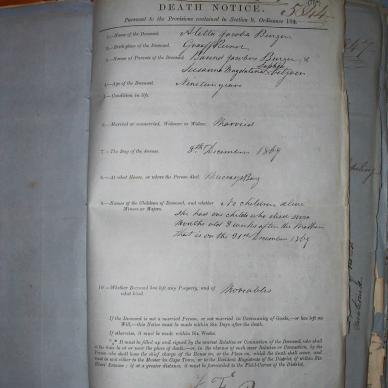 DEATH NOTICE.
Pursuant to the Provisions contained in Section 9, Ordinance 104.
1.—Name of the Deceased. Aletta Jacoba Burger
2.—Birth-place of the Deceased. Graaff Reinet
3.—Names of the Parents of the Deceased. Barend Jacobus Burger &
Susanna Magdalena Sophia
4.—Age of the Deceased. Nineteen years
5.—Condition in life.
6.—Married or unmarried, Widower or Widow. Married
7.—The Day of the decease. 8th December 1869
8.—At what House, or where the Person died. Murraysburg
9.—Names of the Children of Deceased, and whether Minors or Majors. No children alive
She had one child who died seven
months old 3 weeks after the Mother
that is on the 31st December 1869
10.—Whether Deceased has left any Property, and of what kind. Moveables
If the Deceased is not a married Person, or not married in Community of Goods,—or has left no
Will,—this Notice must be made within Six days after the death.
If otherwise, it must be made within Six Weeks.
It must be filled up and signed by the nearest Relative or Connection of the Deceased, who shall
at the time be at or near the place of death;—or, in the absence of such near Relative or Connection, by the
Person who shall have the chief charge of the House in, or the Place on, which the death shall occur, and
must be sent either to the Master in Cape Town, or to the Resident Magistrate of the District, if within Six
Hours' distance; if at a greater distance, it must be forwarded to the Field-Cornet of the District.